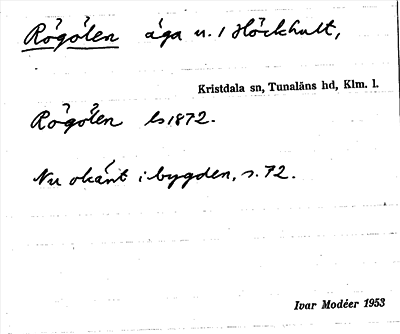 Rögölen äga u. 1 Höckhult,
Kristdala sn, Tunaläns hd, Klm. l.
Rögölen ls 1872.
Nu okänt i bygden, s. 72.
Ivar Modéer 1953